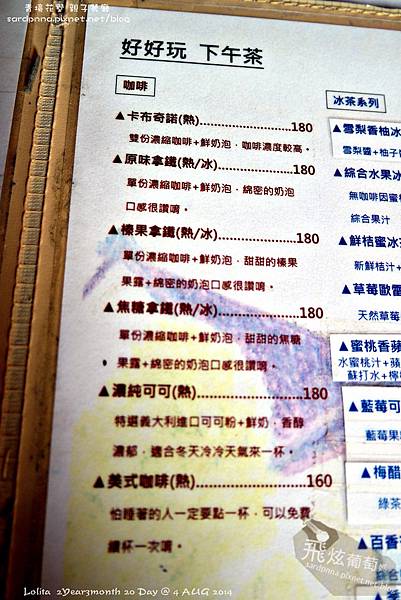 香堤花墅 親子餐廳
sardonna.pixnet.net/blog
好好玩 下午茶
咖啡
▲卡布奇諾(熱)..........................180
雙份濃縮咖啡+鮮奶泡，咖啡濃度較高。
▲原味拿鐵(熱/冰)......................180
單份濃縮咖啡+鮮奶泡，綿密的奶泡
口感很讚唷。
▲榛果拿鐵(熱/冰)......................180
單份濃縮咖啡+鮮奶泡，甜甜的榛果
果露+綿密的奶泡口感很讚唷。
▲焦糖拿鐵(熱/冰)......................180
單份濃縮咖啡+鮮奶泡，甜甜的焦糖
果露+綿密的奶泡口感很讚唷。
▲濃純可可(熱)..........................180
特選義大利進口可可粉+鮮奶，香醇
濃郁，適合冬天冷冷天氣來一杯。
▲美式咖啡(熱)..........................160
怕睡著的人一定要點一杯，可以免費
續杯一次唷。
冰茶系列
▲雪梨香柚冰
雪梨醬+柚子
▲綜合水果冰
無咖啡因蜜
綜合果汁
▲鮮桔蜜冰
新鮮桔汁+
▲草莓歐蕾
天然草莓
▲蜜桃香蘋
水蜜桃汁+蘋
蘇打水+檸
▲藍莓可
藍莓果
▲梅醋
綠茶
▲百香
飛炫葡萄
sardonna.pixnet.net/blog
Lolita 2Year3month 20 Day @ 4 AUG 2014